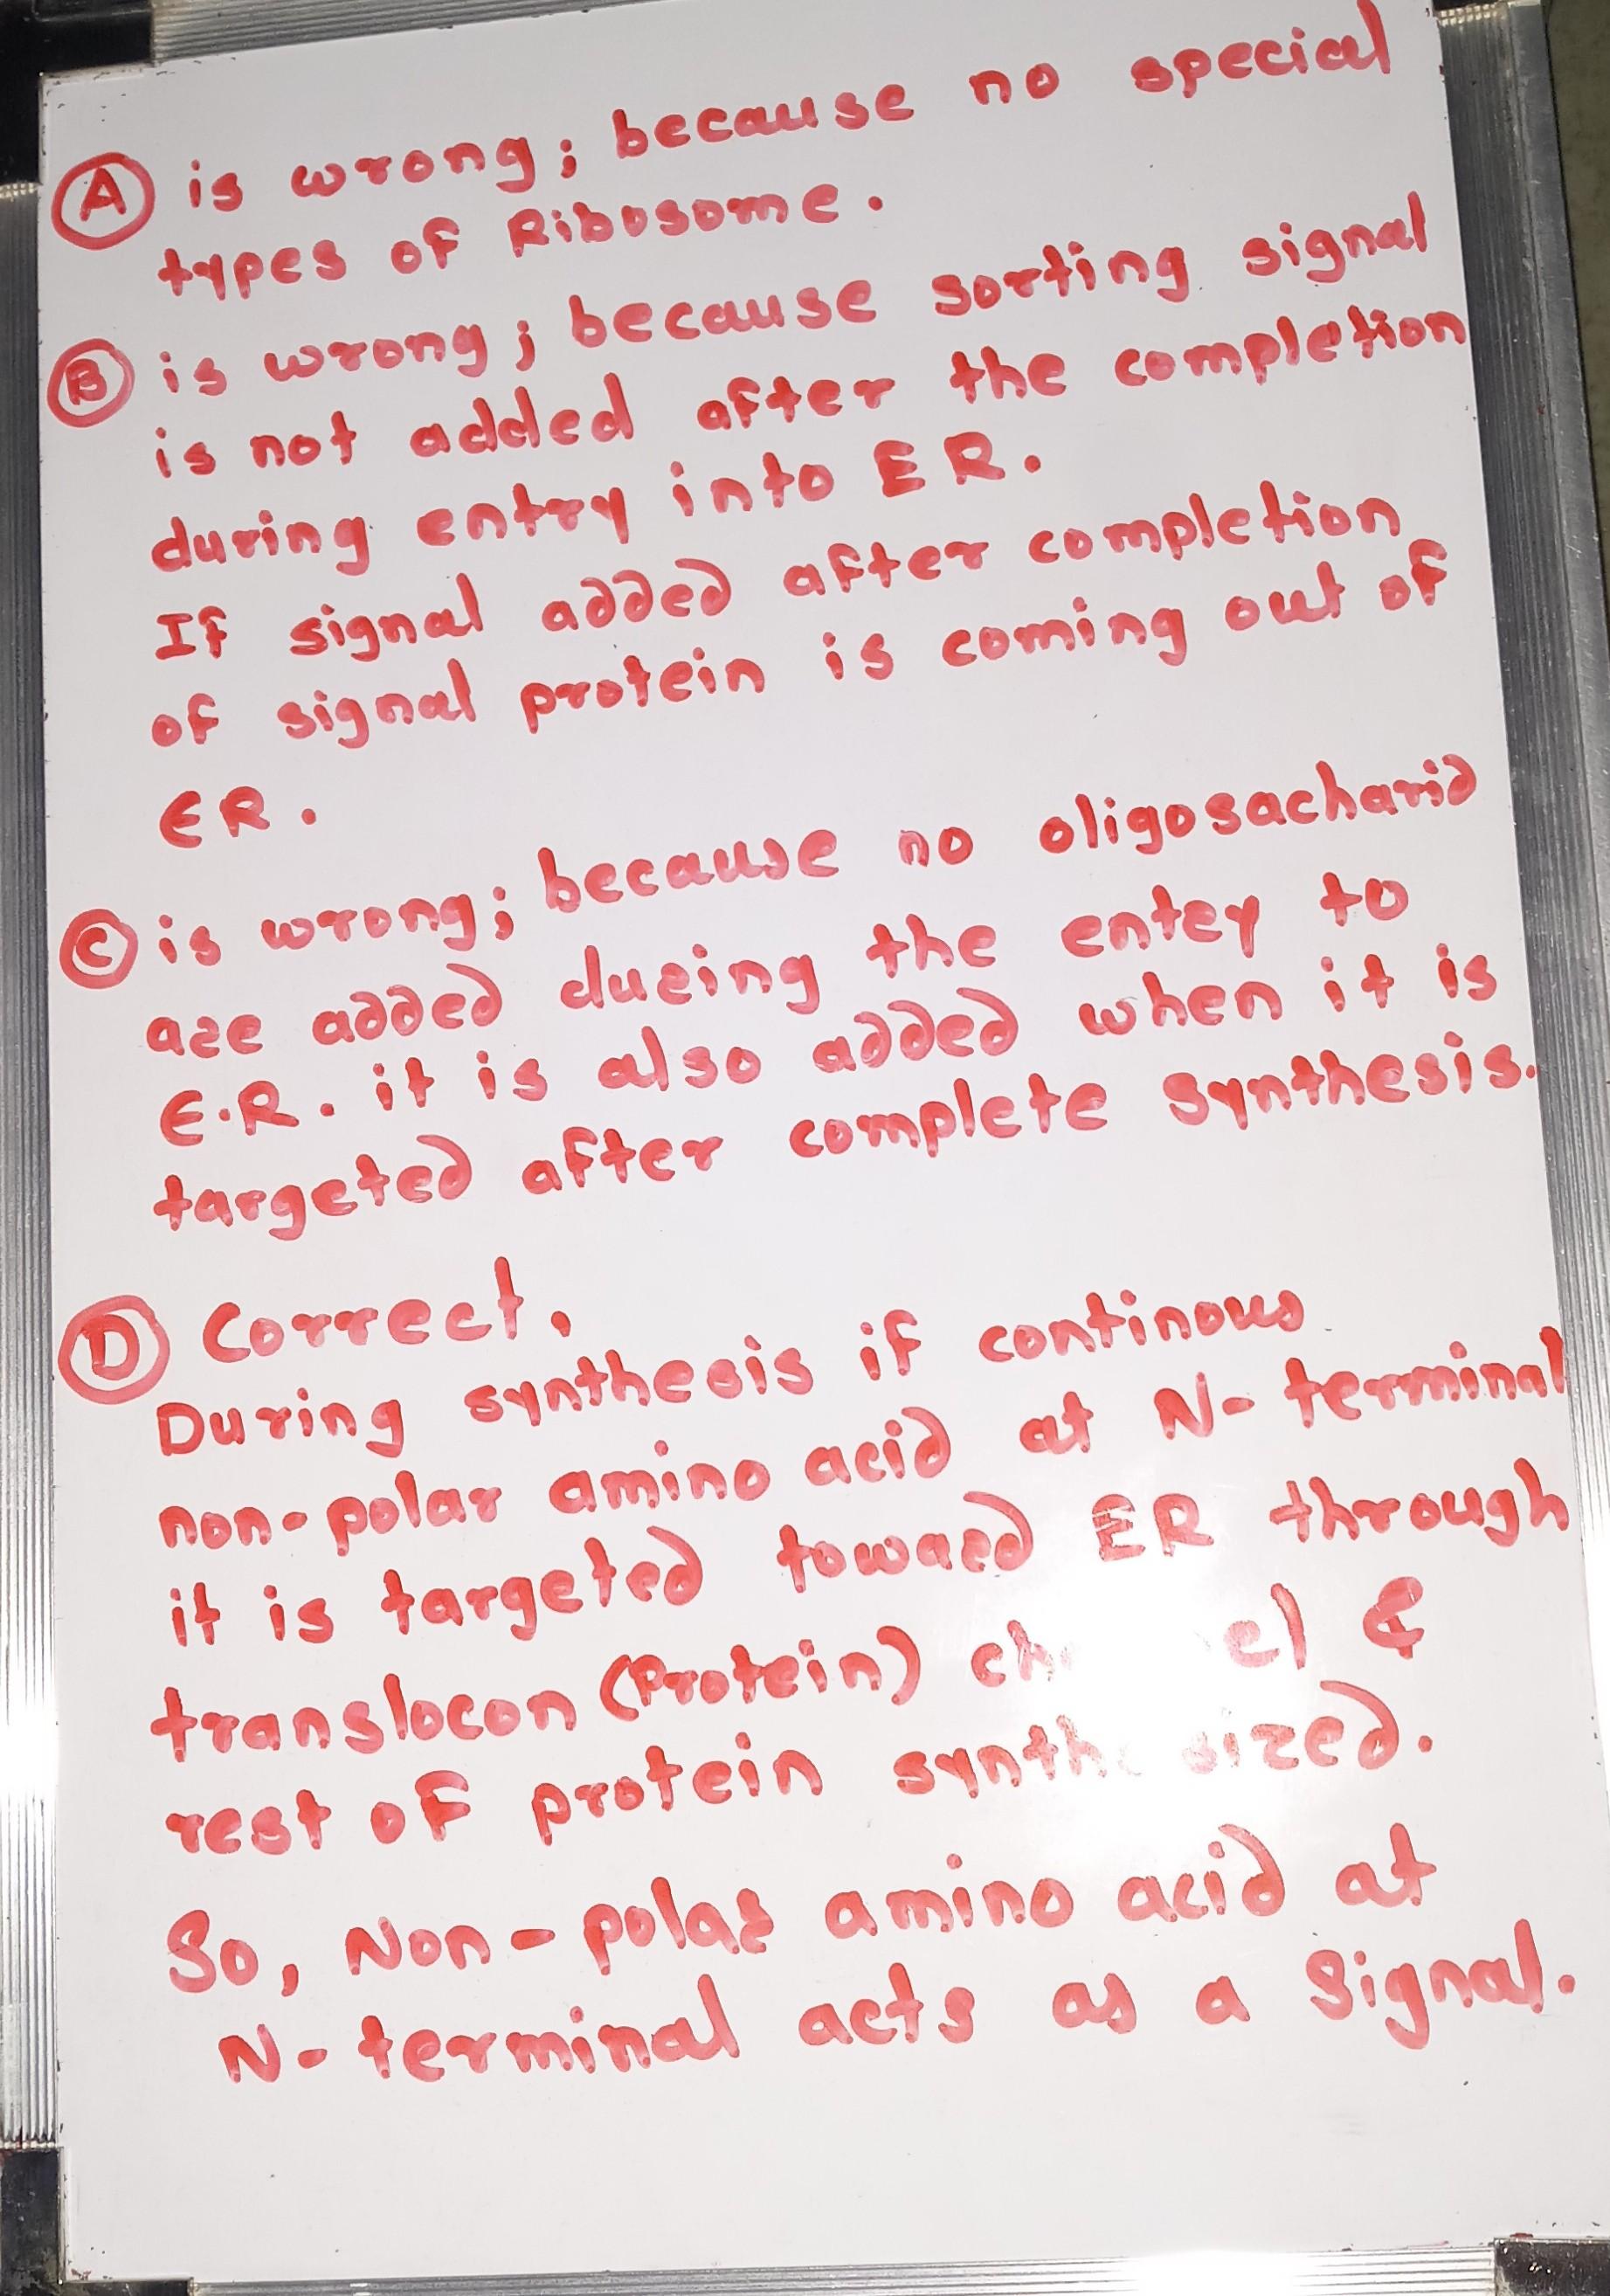 A is wrong; because no special
types of Ribosome.
B is wrong; because sorting signal
is not added after the completion
during entry into ER.
If signal added after completion
of signal protein is coming out of
ER.
C is wrong; because no oligosacharid
are added during the entey to
E.R. it is also added when it is
targeted after complete synthesis.
D Correct.
During synthesis if continous
non-polar amino acid at N-terminal
it is targeted toward ER through
translocon (Protein) &
rest of protein synthesized.
So, Non-polar amino acid at
N-terminal acts as a Signal.